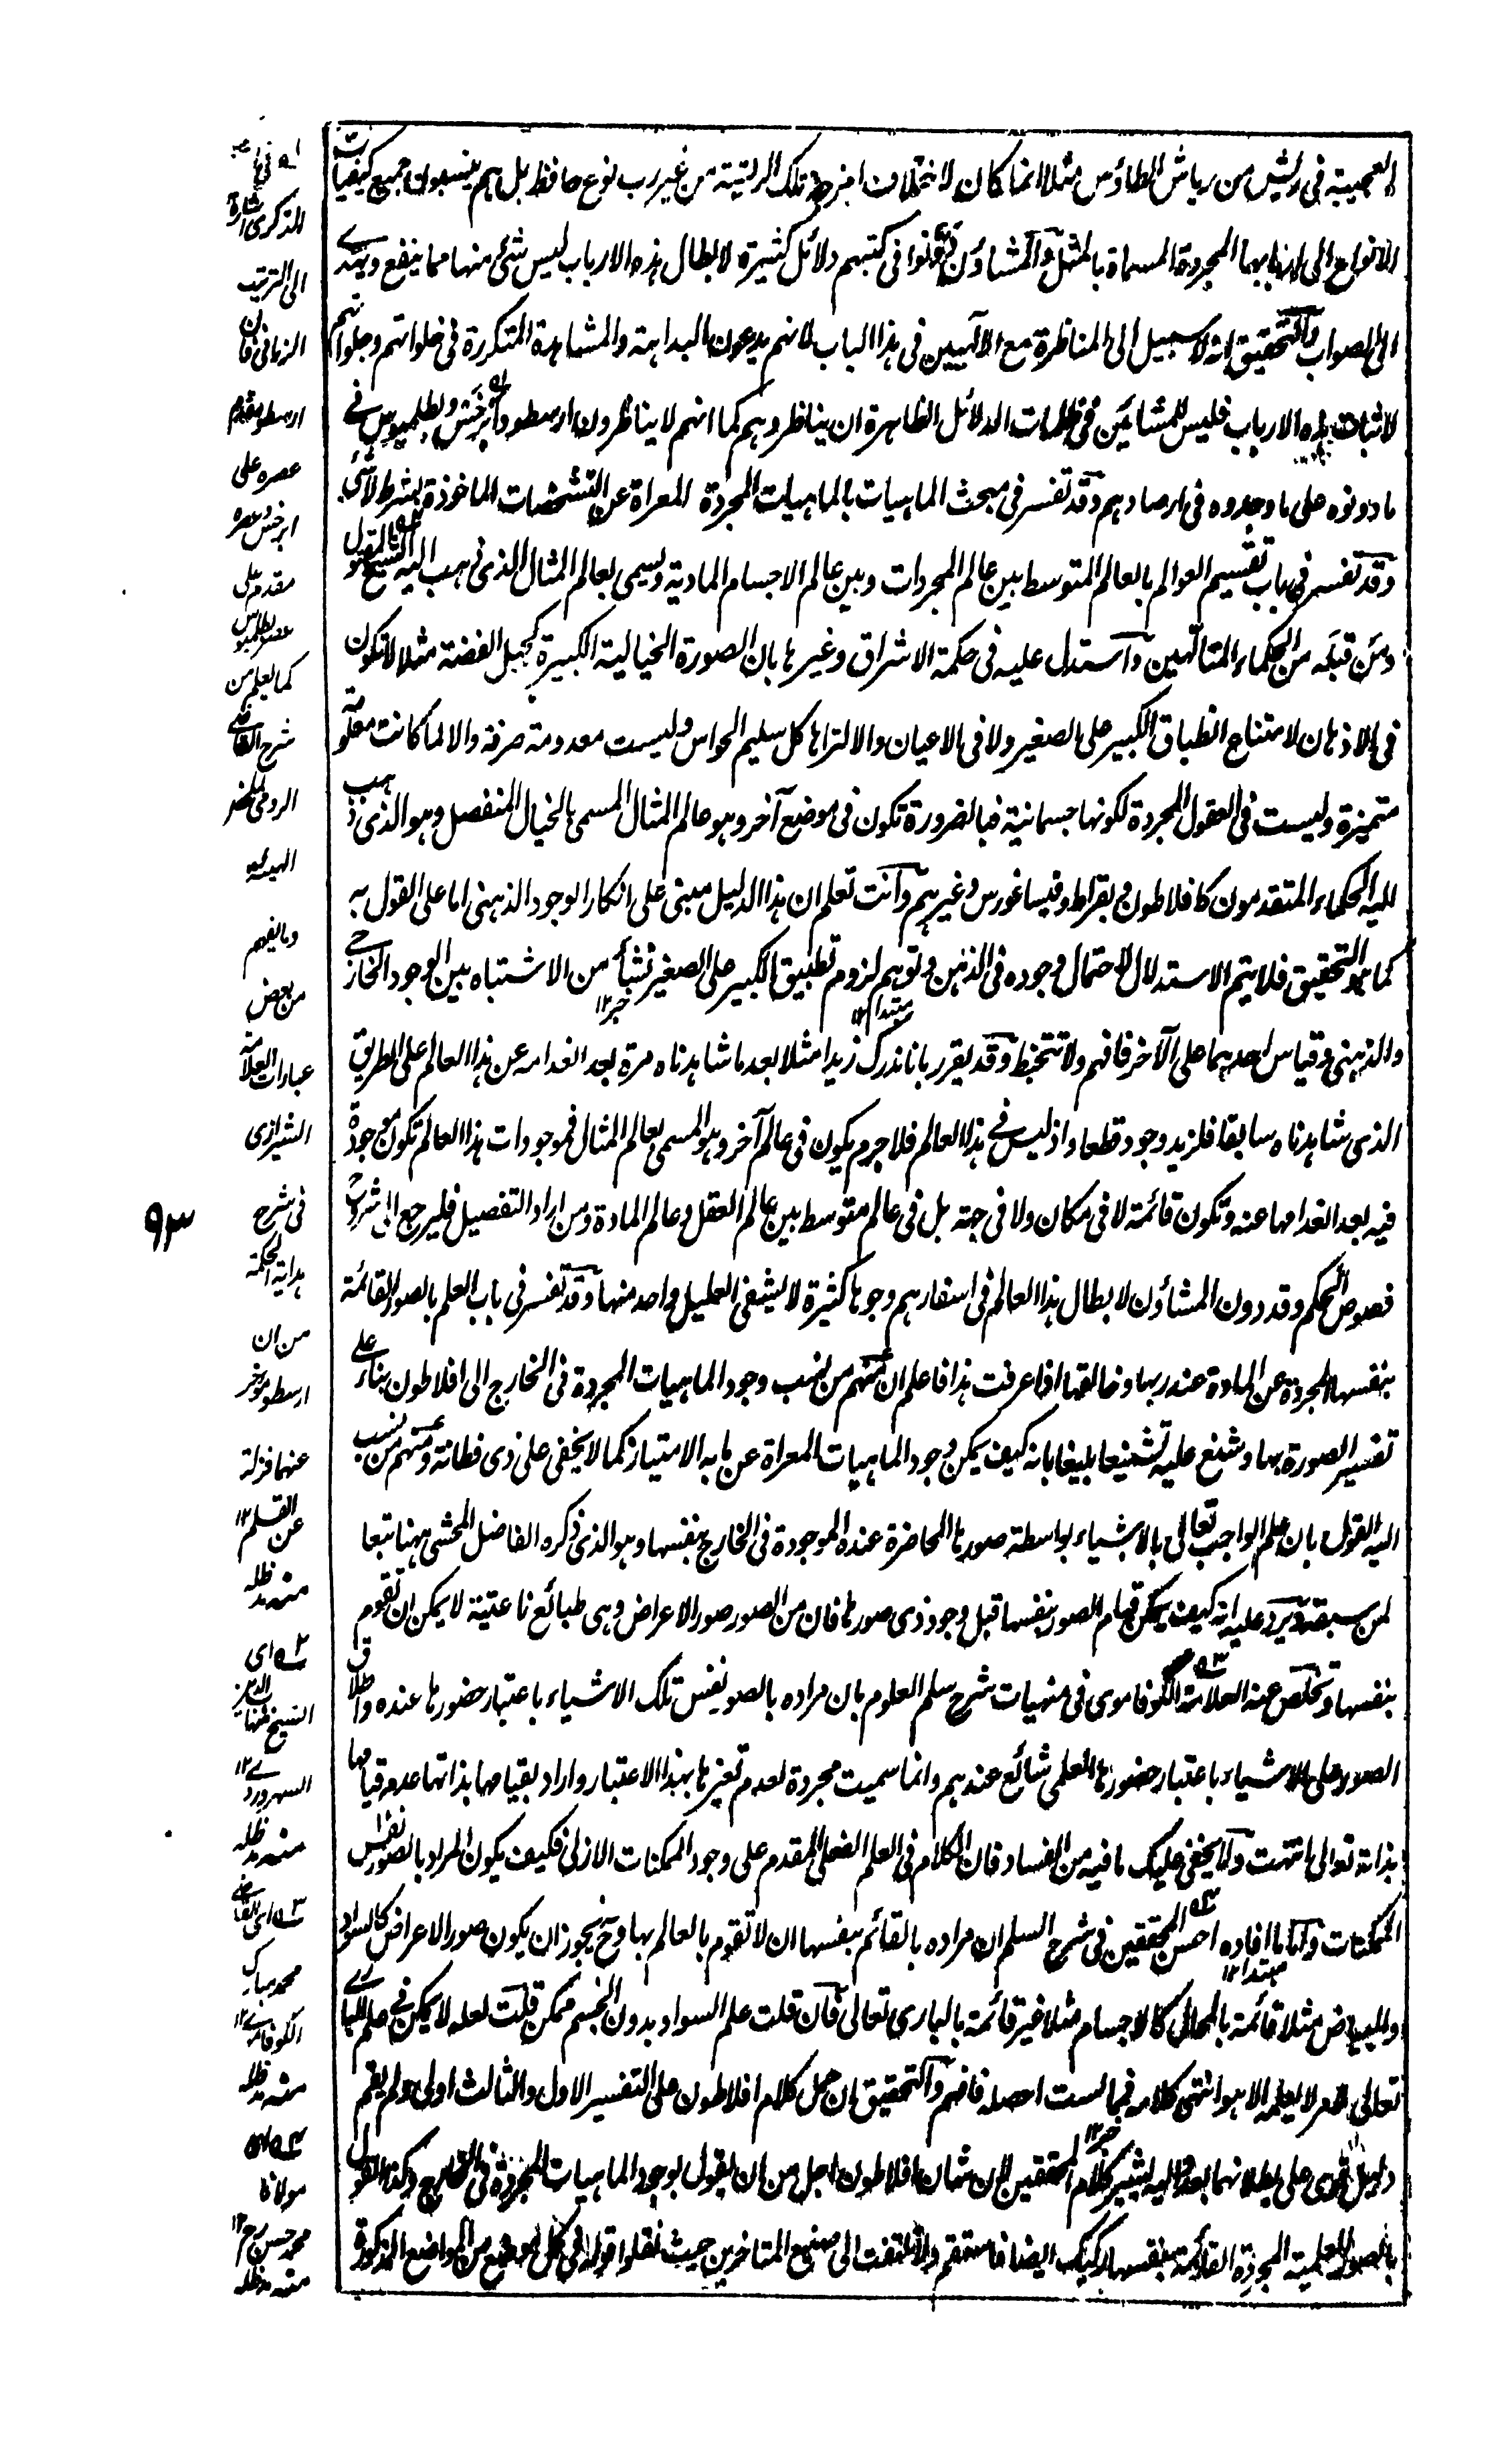 العجيبة فى ريش من رياش الطاؤس مثلا انما كان لاختلاف امزجة تلك الريشة من غير رب نوع حافظ بل هم ينسبون جميع كيفيات
الانواع الى اربابهما المجردة المسماة بالمثل والمشاؤن دونوا فى كتبهم دلائل كثيرة لابطال هذه الارباب ليس شئ منها مما ينفع ويهتدے
الى الصواب والتحقيق انه لا سبيل الى المناظرة مع الآلهيين فى هذا الباب لانهم يدعون البداهة والمشاهدة المتكررة فى خلواتهم وجلواتهم
لاثبات هذه الارباب فليس للمشائين فى ظلمات الدلائل الظاهرة ان يناظروهم كما انهم لا يناظرون ارسطو وابرخش وبطلميوس فے
ما دونوه على ما وجدوه فى ارصادهم وقد تفسر فى مبحث الماهيات بالماهيات المجردة المعراة عن التشخصات الماخوذة بشرط لا شئ
وقد تفسر فى باب تقسيم العوالم بالعالم المتوسط بين عالم المجردات وبين عالم الاجسام المادية ويسمى بعالم المثال الذى ذهب اليه الشيخ المقتول
ومن قبله من الحكماء المتألهين واستدل عليه فى حكمة الاشراق وغيرها بان الصورة الخيالية الكبيرة كجبل الفضة مثلا لا تكون
فى الاذهان لامتناع انطباق الكبير على الصغير ولا فى الاعيان والا لتراها كل سليم الحواس وليست معدومة صرفة والا لما كانت معلومة
متميزة وليست فى العقول المجردة لكونها جسمانية فبالضرورة تكون فى موضع آخر وهو عالم المثال المسمى بالخيال المنفصل وهو الذى ذهب
اليه الحكماء المتقدمون كافلاطون وبقراط وفيساغورس وغيرهم وانت تعلم ان هذا الدليل مبنى على انكار الوجود الذهنى اما على القول به
كما هو التحقيق فلا يتم الاستدلال لاحتمال وجوده فى الذهن وتوهم لزوم تطبيق الكبير على الصغير نشأ من الاشتباه بين الوجود الخارجے
مبتدا ١٢ خبر ١٢
والذهنى وقياس احدهما على الآخر فافهم ولا تتخبط وقد يقرر بانا ندرك زيدا مثلا بعد ما شاهدناه مرة بعد انعدامه عن هذا العالم على الطريق
الذى شاهدناه سابقا فلزيد وجود قطعا واذ ليس فے هذا العالم فلا جرم يكون فى عالم آخر وهو المسمى بعالم المثال فموجودات هذا العالم تكون موجودة
فيه بعد انعدامها عنه وتكون قائمة لا فى مكان ولا فى جهة بل فى عالم متوسط بين عالم العقل وعالم المادة ومن اراد التفصيل فليرجع الى شروح
فصوص الحكم وقد دون المشاؤن لابطال هذا العالم فى اسفارهم وجوها كثيرة لا يشفى العليل واحد منها وقد تفسر فى باب العلم بالصور القائمة
بنفسها المجردة عن المادة عند ربها وخالقها اذا عرفت هذا فاعلم ان منهم من نسب وجود الماهيات المجردة فى الخارج الى افلاطون بناء علے
تفسير الصورة بها وشنع عليه تشنيعا بليغا بانه كيف يمكن وجود الماهيات المعراة عن ما به الامتياز كما لا يخفى على ذى فطانة ومنهم من نسب
اليه القول بان علم الواجب تعالى بالاشياء بواسطة صورها الحاضرة عنده الموجودة فى الخارج بنفسها وهو الذى ذكره الفاضل المحشى ههنا تبعا
لمن سبقه ويرد عليه انه كيف يمكن قيام الصور بنفسها قبل وجود ذى صورها فان من الصور صور الاعراض وهى طبائع ناعتية لا يمكن ان تقوم
بنفسها وتخلص عنه العلامة الكوفاموى فى منهيات شرح سلم العلوم بان مراده بالصور نفس تلك الاشياء باعتبار حضورها عنده واطلاق
الصور على الاشياء باعتبار حضورها العلمى شائع عندهم وانما سميت مجردة لعدم تغيرها بهذا الاعتبار واراد بقيامها بذاتها عدم قيامها
بذاته تعالى انتهت ولا يخفى عليك ما فيه من الفساد فان الكلام فى العلم الفعلى المقدم على وجود الممكنات الازلى فكيف يكون المراد بالصور نفس
الممكنات واما ما افاده احسن المحققين فى شرح السلم ان مراده بالقائم بنفسها ان لا تقوم بالعالم بها وح يجوز ان يكون صور الاعراض كالسواد
مبتدا ١٢
والبياض مثلا قائمة بالمحال كالاجسام مثلا غير قائمة بالبارى تعالى فان قلت علم السواد بدون الجسم ممكن قلت لعله لا يمكن فے علم البارے
تعالى لامر لا يعلمه الا هو انتهى كلامه فما لست احصله فافهم والتحقيق ان حمل كلام افلاطون على التفسير الاول والثالث اولى ولم يقم
خبر ١٢
دليل قوى على بطلانهما بعد واليه يشير كلام المحققين لان شان افلاطون اجل من ان يقول بوجود الماهيات المجردة فى الخارج وكذا القول
بالصور العلمية المجردة القائمة بنفسها ركيك ايضا فاستقم ولا تلتفت الى صنيع المتاخرين حيث نقلوا قوله فى كل موضع من المواضع المذكورة
٩٣
له فى هذا
الذكرى اشارة
الى الترتيب
الزمانى فان
ارسطو مقدم
عصره على
ابرخش وعصره
مقدم على
عصر بطلميوس
كما يعلم من
شرح القاضے
الرومى لملخص
الهيئة
وما يفهم
من بعض
عبارات العلامة
الشيرازى
فى شرح
هداية الحكمة
من ان
ارسطو مؤخر
عنهما فزلة
عن القلم ١٢
منه مد ظله
٢ه اى
الشيخ شهاب الدين
السهروردے ١٢
منه مد ظله
٣ه اى القاضے
محمد مبارك
الكوفاموے ١٢
منه مد ظله
٤ه اى
مولانا
محمد حسن رح ١٢
منه مد ظله